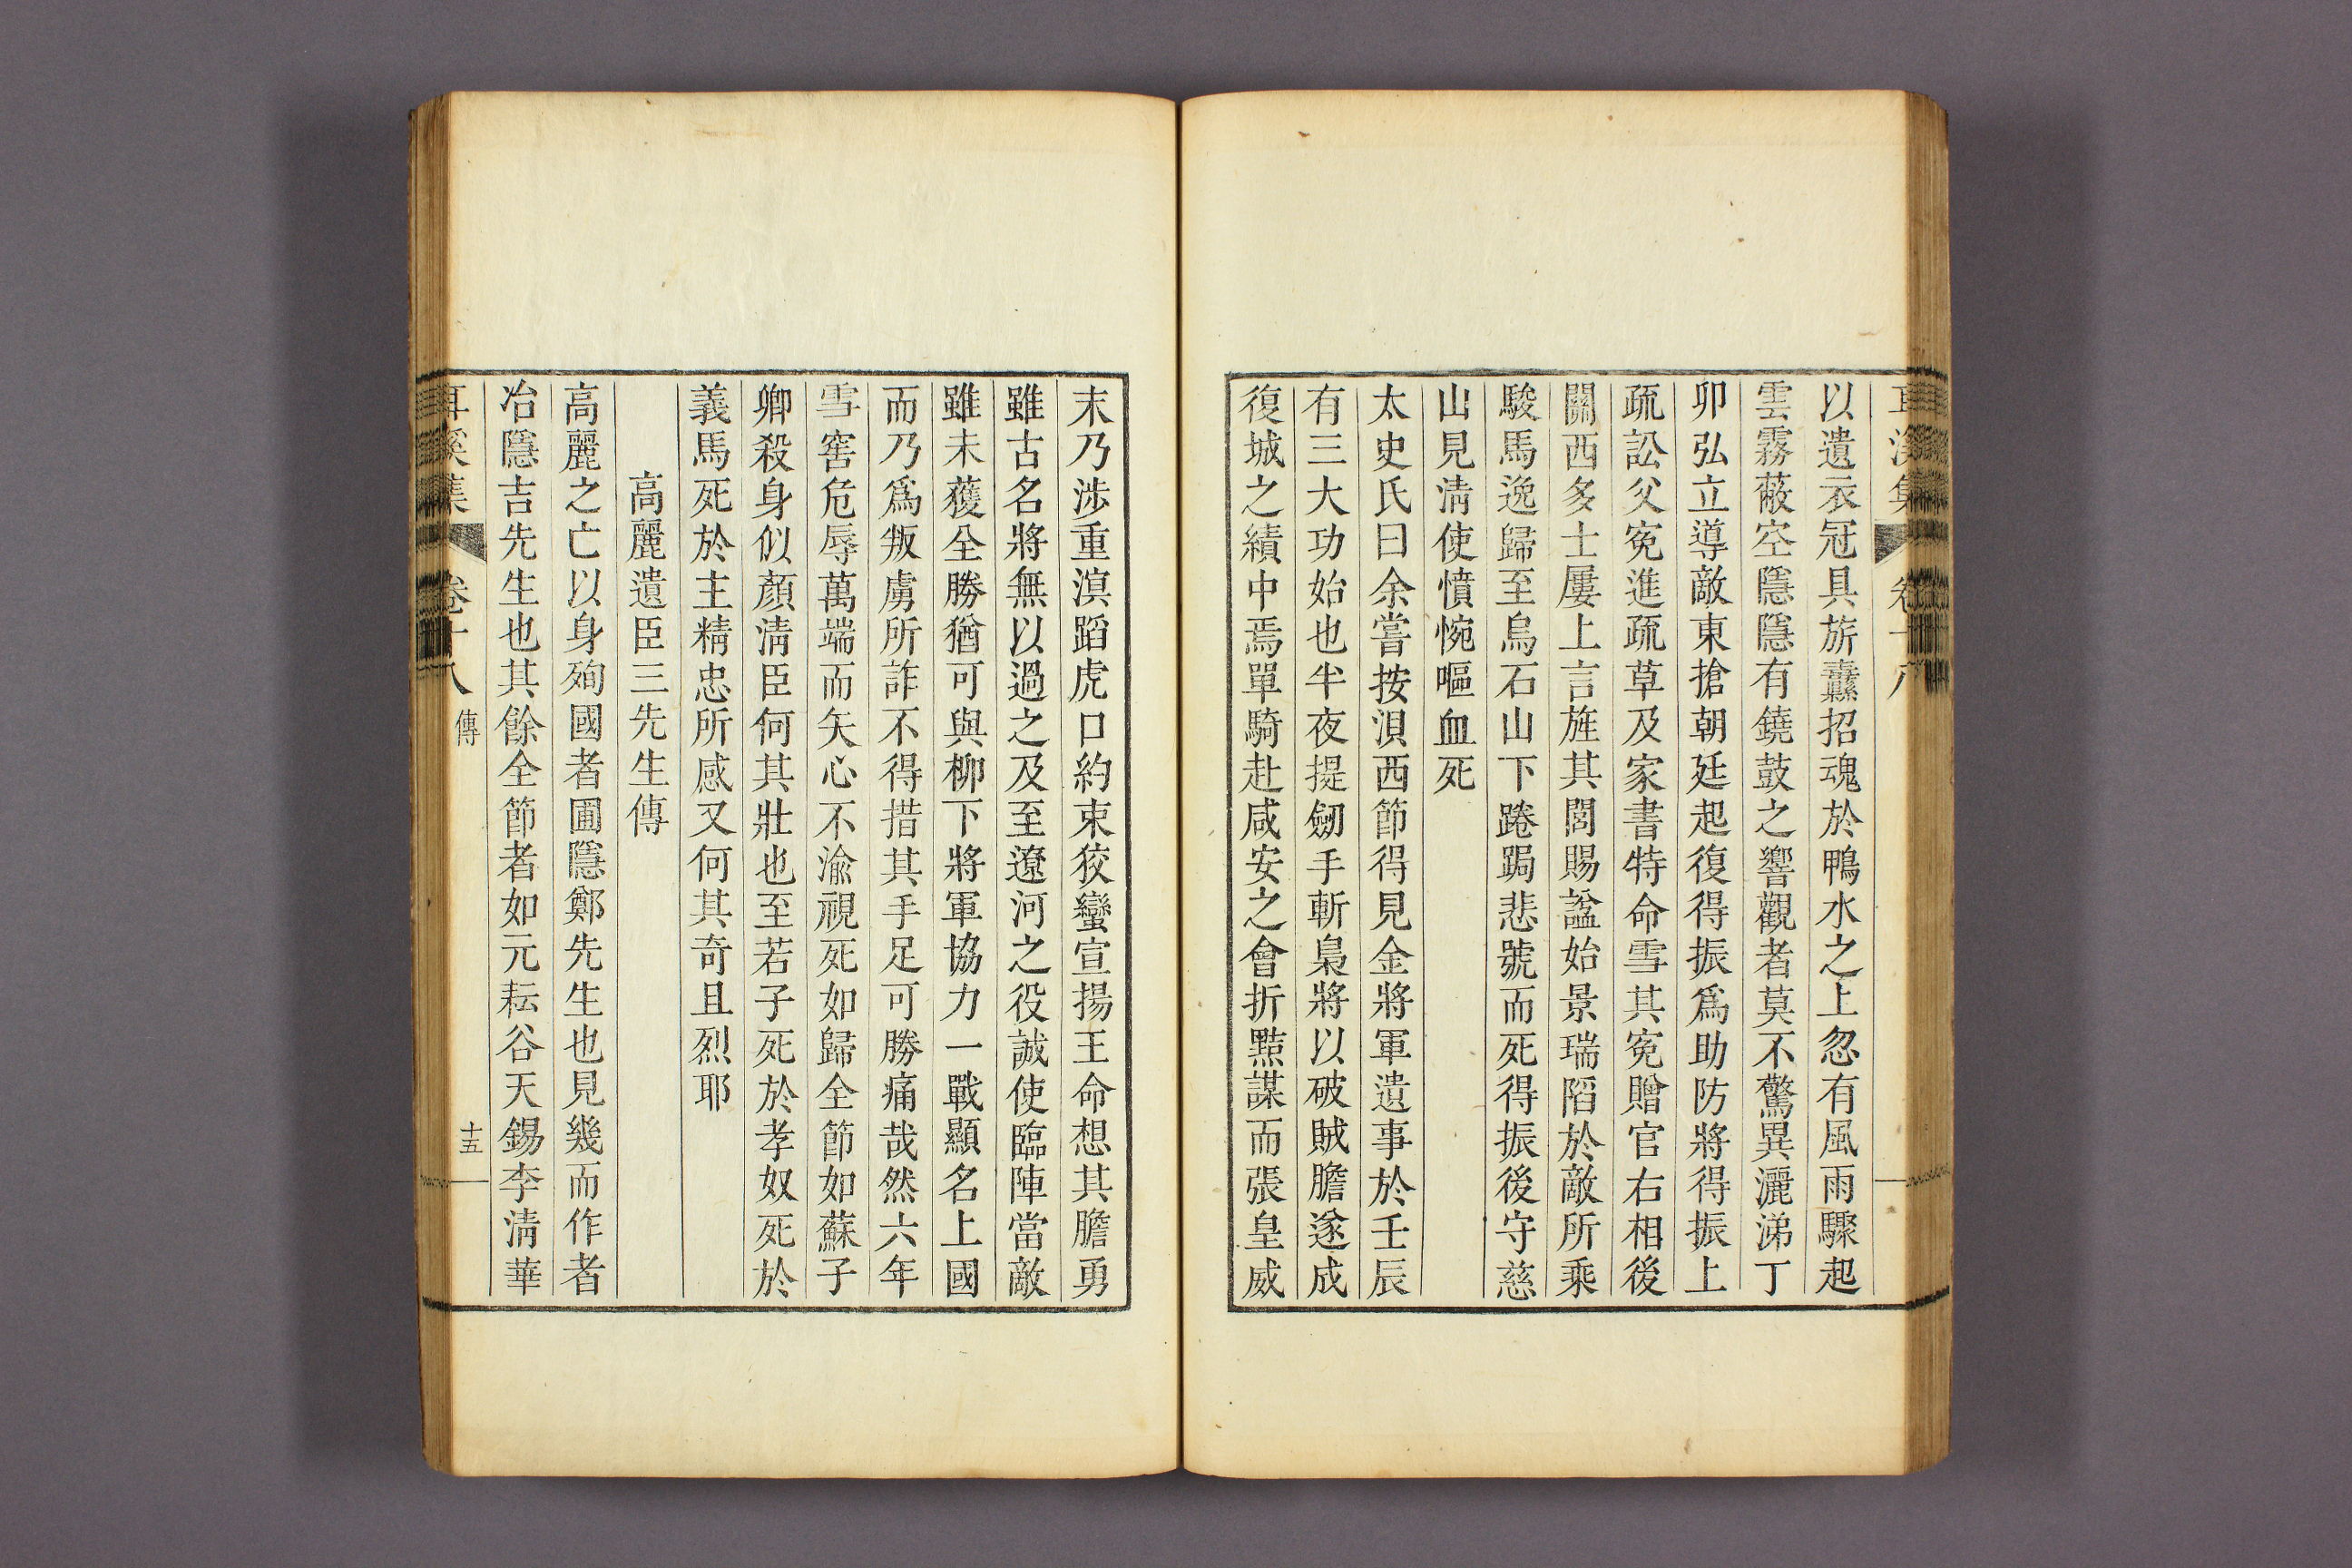 以遺衣冠具旂纛招魂於鴨水之上忽有風雨驟起
雲霧蔽空隱隱有鐃鼓之響觀者莫不驚異灑涕丁
卯弘立導敵東搶朝廷起復得振爲助防將得振上
疏訟父寃進疏草及家書特命雪其寃贈官右相後
關西多士屢上言旌其閭賜諡始景瑞陷於敵所乘
駿馬逸歸至烏石山下踡跼悲號而死得振後守慈
山見淸使憤惋嘔血死
太史氏曰余嘗按浿西節得見金將軍遺事於壬辰
有三大功始也半夜提劒手斬梟將以破賊膽遂成
復城之績中焉單騎赴咸安之會折黠謀而張皇威
末乃涉重溟蹈虎口約束狡蠻宣揚王命想其膽勇
雖古名將無以過之及至遼河之役誠使臨陣當敵
雖未獲全勝猶可與柳下將軍協力一戰顯名上國
而乃爲叛虜所詐不得措其手足可勝痛哉然六年
雪窖危辱萬端而矢心不渝視死如歸全節如蘇子
卿殺身似顏淸臣何其壯也至若子死於孝奴死於
義馬死於主精忠所感又何其奇且烈耶
高麗遺臣三先生傳
高麗之亡以身殉國者圃隱鄭先生也見幾而作者
冶隱吉先生也其餘全節者如元耘谷天錫李淸華
耳溪集 卷十八 傳 十五